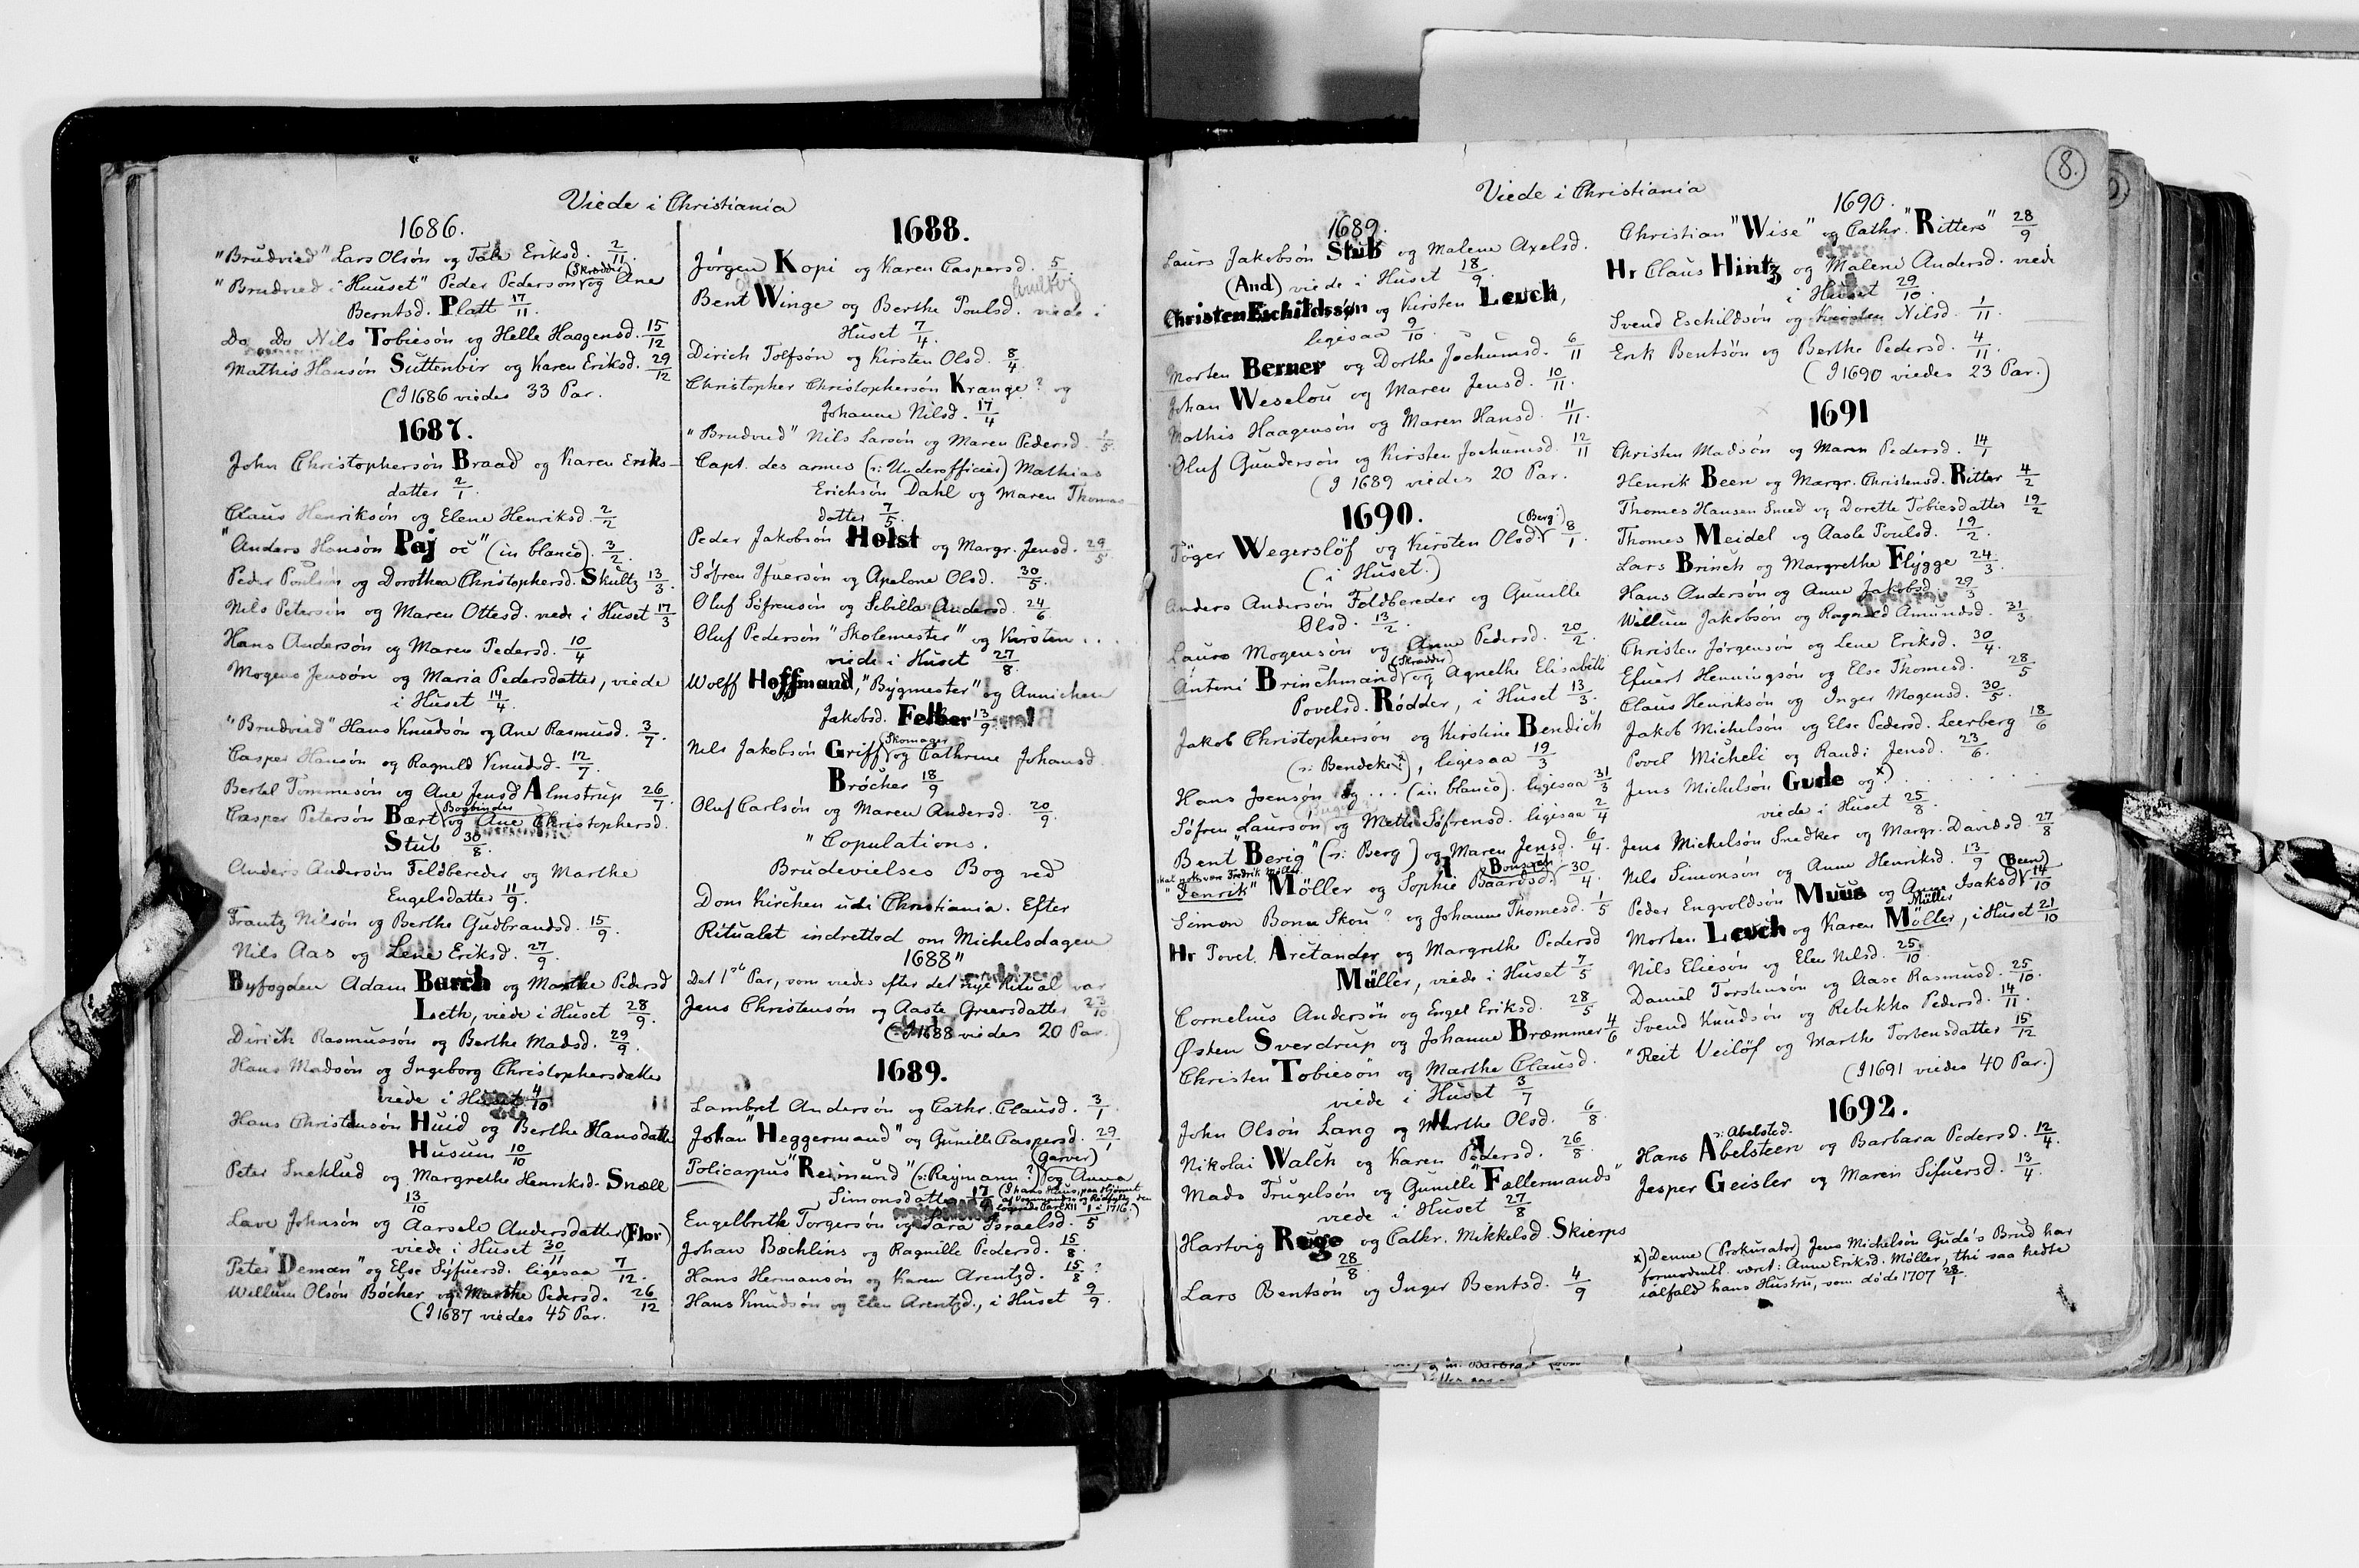 Viede i Christiania
1686.
"Brudvied" Lars Olsön og Tale Eriksd. 2/11.
"Brudvied i Huuset" Peder Pedersön (Skrædder) og Ane
Berntsd. Platt 17/11.
Do Do Nils Tobiesön og Helle Haagensd. 15/12
Mathis Hansön Suttenbir og Karen Eriksd. 29/12
(I 1686 viedes 33 Par.
1687.
John Christophersön Braad og Karen Eriks-
datter 2/1.
Claus Henriksön og Elene Henriksd. 2/2
"Anders Hansön Paj oc" (in blanco). 3/2.
Peder Poulsön og Dorothea Christophersd. Skultz 13/3.
Nils Petersön og Maren Ottesd. viede i Huset 17/3
Hans Andersön og Maren Pedersd. 10/4
Mogens Jensön og Maria Pedersdatter, viede
i Huset 14/4.
"Brudvied" Hans Knudsön og Ane Rasmusd. 3/7.
Casper Hansön og Ragnild Knudsd. 12/7.
Bertel Tommesön og Ane Jensd Almstrup 26/7.
Casper Petersön Bært (Bogbinder) og Ane Christophersd.
Stub 30/8.
Anders Andersön Feldbereder og Marthe
Engelsdatter 11/9.
Frantz Nilsön og Berthe Gudbrandsd. 15/9.
Nils Aas og Lene Eriksd. 27/9.
Byfogden Adam Barch og Marthe Pedersd
Leth, viede i Huset 28/9.
Dirich Rasmussön og Berthe Madsd. 29/9.
Hans Madsön og Ingeborg Christophersdatter
viede i Huset 4/10
Hans Christensön Huid og Berthe Hansdatter
Husum 10/10
Peter Sneklud og Margrethe Henriksd. Snæll
13/10
Lave Johnsön og Aarsele Andersdatter (Flor)
viede i Huset 30/11
Peter "Deman" og Else Syfuersd. ligesaa 7/12.
Willum Olsön Böcker og Marthe Pedersd. 26/12
(I 1687 viedes 45 Par.
1688.
Jörgen Kopi og Karen Caspersd. 5/
Bent Winge og Berthe Poulsd. viede i
Huset 7/4.
Dirich Tolfsön og Kirsten Olsd. 8/4.
Christopher Christophersön Krange? og
Johanne Nilsd. 17/4
"Brudvied" Nils Larsön og Maren Pedersd. 1/5.
Capt. des armes (ɔ: Underofficier) Mathias
Erichsön Dahl og Maren Thomas-
datter 7/5.
Peder Jakobsön Holst og Margr. Jensd. 29/5
Söfren Ifuersön og Apelone Olsd. 30/5.
Oluf Söfrensön og Sibilla Andersd. 24/6
Oluf Pedersön "Skolemester" og Kirsten ...
viede i Huset 27/8.
Wolff Hoffmand, "Bygmester" og Annichen
Jakobsd. Felber 13/9
Nils Jakobsön Griff (Skomager) og Cathrine Johansd.
Bröcker 18/9
Oluf Carlsön og Maren Andersd. 20/9.
"Copulations.
Brudevielses Bog ved
Dom Kirchen udi Christiania. Efter
Ritualet indrettod om Michelsdagen
1688"
Det 1ste Par, som viedes efter det nye Ritual var
Jens Christensön og Aaste Greersdatter 23/10
(I 1688 viedes 20 Par.)
1689.
Lambret Andersön og Cathr. Clausd. 3/1.
Johan "Heggermand" og Gunille Caspersd. 29/1
Policarpus "Reimund" (ɔ: Reymann?) (Garver) og Anna
Simonsdatter 17/4
Engelbrith Torgersön og Sara Israelsd. 1/5
Johan Bæchlins og Ragnille Pedersd. 15/8.
Hans Hermansön og Karen Arentzd. 15/8?
Hans Knudsön og Elen Arentzd., i Huset 9/9.
8.
Viede i Christiania
1689.
Laurs Jakobsön Stub og Malene Axelsd.
(And) viede i Huset 18/9.
Christen Eschildssøn og Kirsten Leuch,
ligesaa 9/10.
Morten Berner og Dorthe Jochumsd. 6/11
Johan Weselou og Maren Jensd. 10/11.
Mathis Haagensön og Maren Hansd. 11/11.
Oluf Gundersön og Kirsten Jochumsd. 12/11
(I 1689 viedes 20 Par.
1690.
Töger Wegerslöf og Kirsten Olsd. (Berg?) 8/1.
(i Huset.)
Anders Andersön Feldbereder og Gunille
Olsd. 13/2.
Laurs Mogensön og Anne Pedersd. 20/2.
Antoni Brinchmand (Skrædder) og Agnethe Elisabeth
Povelsd. Rödder, i Huset 13/3.
Jakob Christophersön og Kirstine Bendich
(ɔ: Bendeke?), ligesaa 19/3
Hans Joensön og ... (in blanco). ligesaa 31/3
Söfren Laursön og Mette Söfrensd. ligesaa 2/4
Bent "Berig" (ɔ: Berg) og Maren Jensd. 6/4.
skal nok være Fredrik Möller.
"Jenrik" Möller og Sophie Baardsd. 30/4.
Simon Bonn Skou? og Johanne Thomesd. 1/5
Hr Povel Arctander og Margrethe Pedersd
Müller, viede i Huset 7/5
Cornelius Andersön og Engel Eriksd. 28/5
Østen Sverdrup og Johanne Bræmmer 4/6
Christen Tobiesön og Marthe Clausd.
viede i Huset 3/7
John Olsön Lang og Marthe Olsd. 6/8.
Nikolai Walch og Karen Pedersd. 26/8.
Mads Trugelsön og Gunille "Fællermands"
viede i Huset 27/8
Hartvig Rege og Cathr. Mikkelsd. Skierps
28/8.
Lars Bentsön og Inger Bentsd. 4/9
1690.
Christian "Wise" og Cathr. "Ritters" 28/9
Hr Claus Hintz og Malene Andersd. viede
i Huset 29/10.
Svend Eschildsön og Kirsten Nilsd. 1/11.
Erik Bentsön og Berthe Pedersd. 4/11.
(I 1690 viedes 23 Par.)
1691
Christen Madsön og Maren Pedersd. 14/1
Henrik Been og Margr. Christensd. Ritter 4/2
Thomes Hansen Smed og Dorette Tobiesdatter 19/2
Thomes Meidel og Aasle Poulsd. 19/2.
Lars Brinch og Margrethe Flygge 24/3.
Hans Andersön og Anne Jakobsd. 29/3
Willum Jakobsön og Ragnild Amundsd. 31/3
Christen Jörgensön og Lene Eriksd. 30/4.
Efuert Henningsön og Else Thomesd. 28/5
Claus Henriksön og Inger Mogensd. 30/5.
Jakob Michelsön og Else Pedersd. Leerberg 18/6
Povel Micheli og Randi Jensd. 23/6.
Jens Michelsön Gude og x) . . . . . .
viede i Huset 25/8.
Jens Michelsön Snedker og Margr. Davidsd. 27/8
Nils Simonsön og Anne Henriksd. 13/9
Peder Engvoldsön Muus og Anne Isaksd. (Been) 14/10
Morten Leuch og Karen Möller, i Huset 21/10
Müller
Nils Eliesön og Elen Nilsd. 25/10.
Daniel Torstensön og Aase Rasmusd. 25/10.
Svend Knudsön og Rebekka Pedersd. 14/11.
"Reit Veilöf og Marthe Torbensdatter 15/12
(I 1691 viedes 40 Par.)
1692.
ɔ: Abelsted.
Hans Abelsteen og Barbara Pedersd. 12/4.
Jesper Geisler og Maren Sifuersd. 13/4.
x) Denne (Prokurator) Jens Michelsön Gude's Brud har
formodentl. været: Anne Eriksd. Möller, thi saa hedte
ialfald hans Hustru, som döde 1707 28/1.